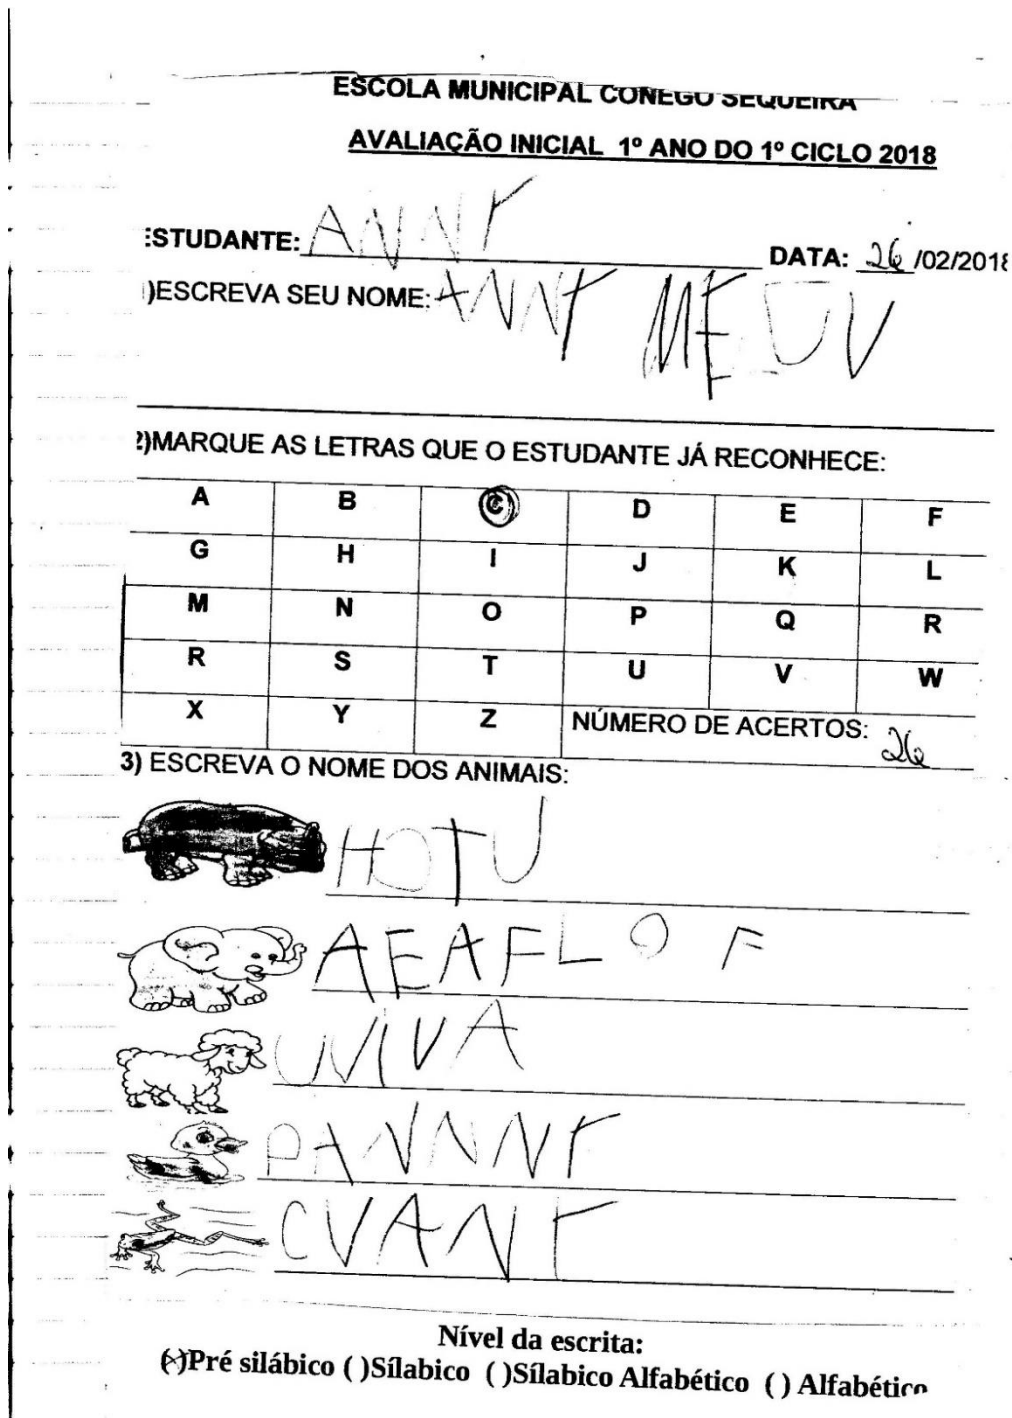 ESCOLA MUNICIPAL CONEGO SEQUEIRA
AVALIAÇÃO INICIAL 1º ANO DO 1º CICLO 2018
ESTUDANTE: ANNY DATA: 26/02/2018
1)ESCREVA SEU NOME: ANNY MEUV
2)MARQUE AS LETRAS QUE O ESTUDANTE JÁ RECONHECE:
A B C D E F
G H I J K L
M N O P Q R
R S T U V W
X Y Z NÚMERO DE ACERTOS: 26
3) ESCREVA O NOME DOS ANIMAIS:
HOTU
AEAFLO F
UVIVA
PANNNY
CVANY
Nível da escrita:
(x)Pré silábico ( )Sílabico ( )Sílabico Alfabético ( ) Alfabético